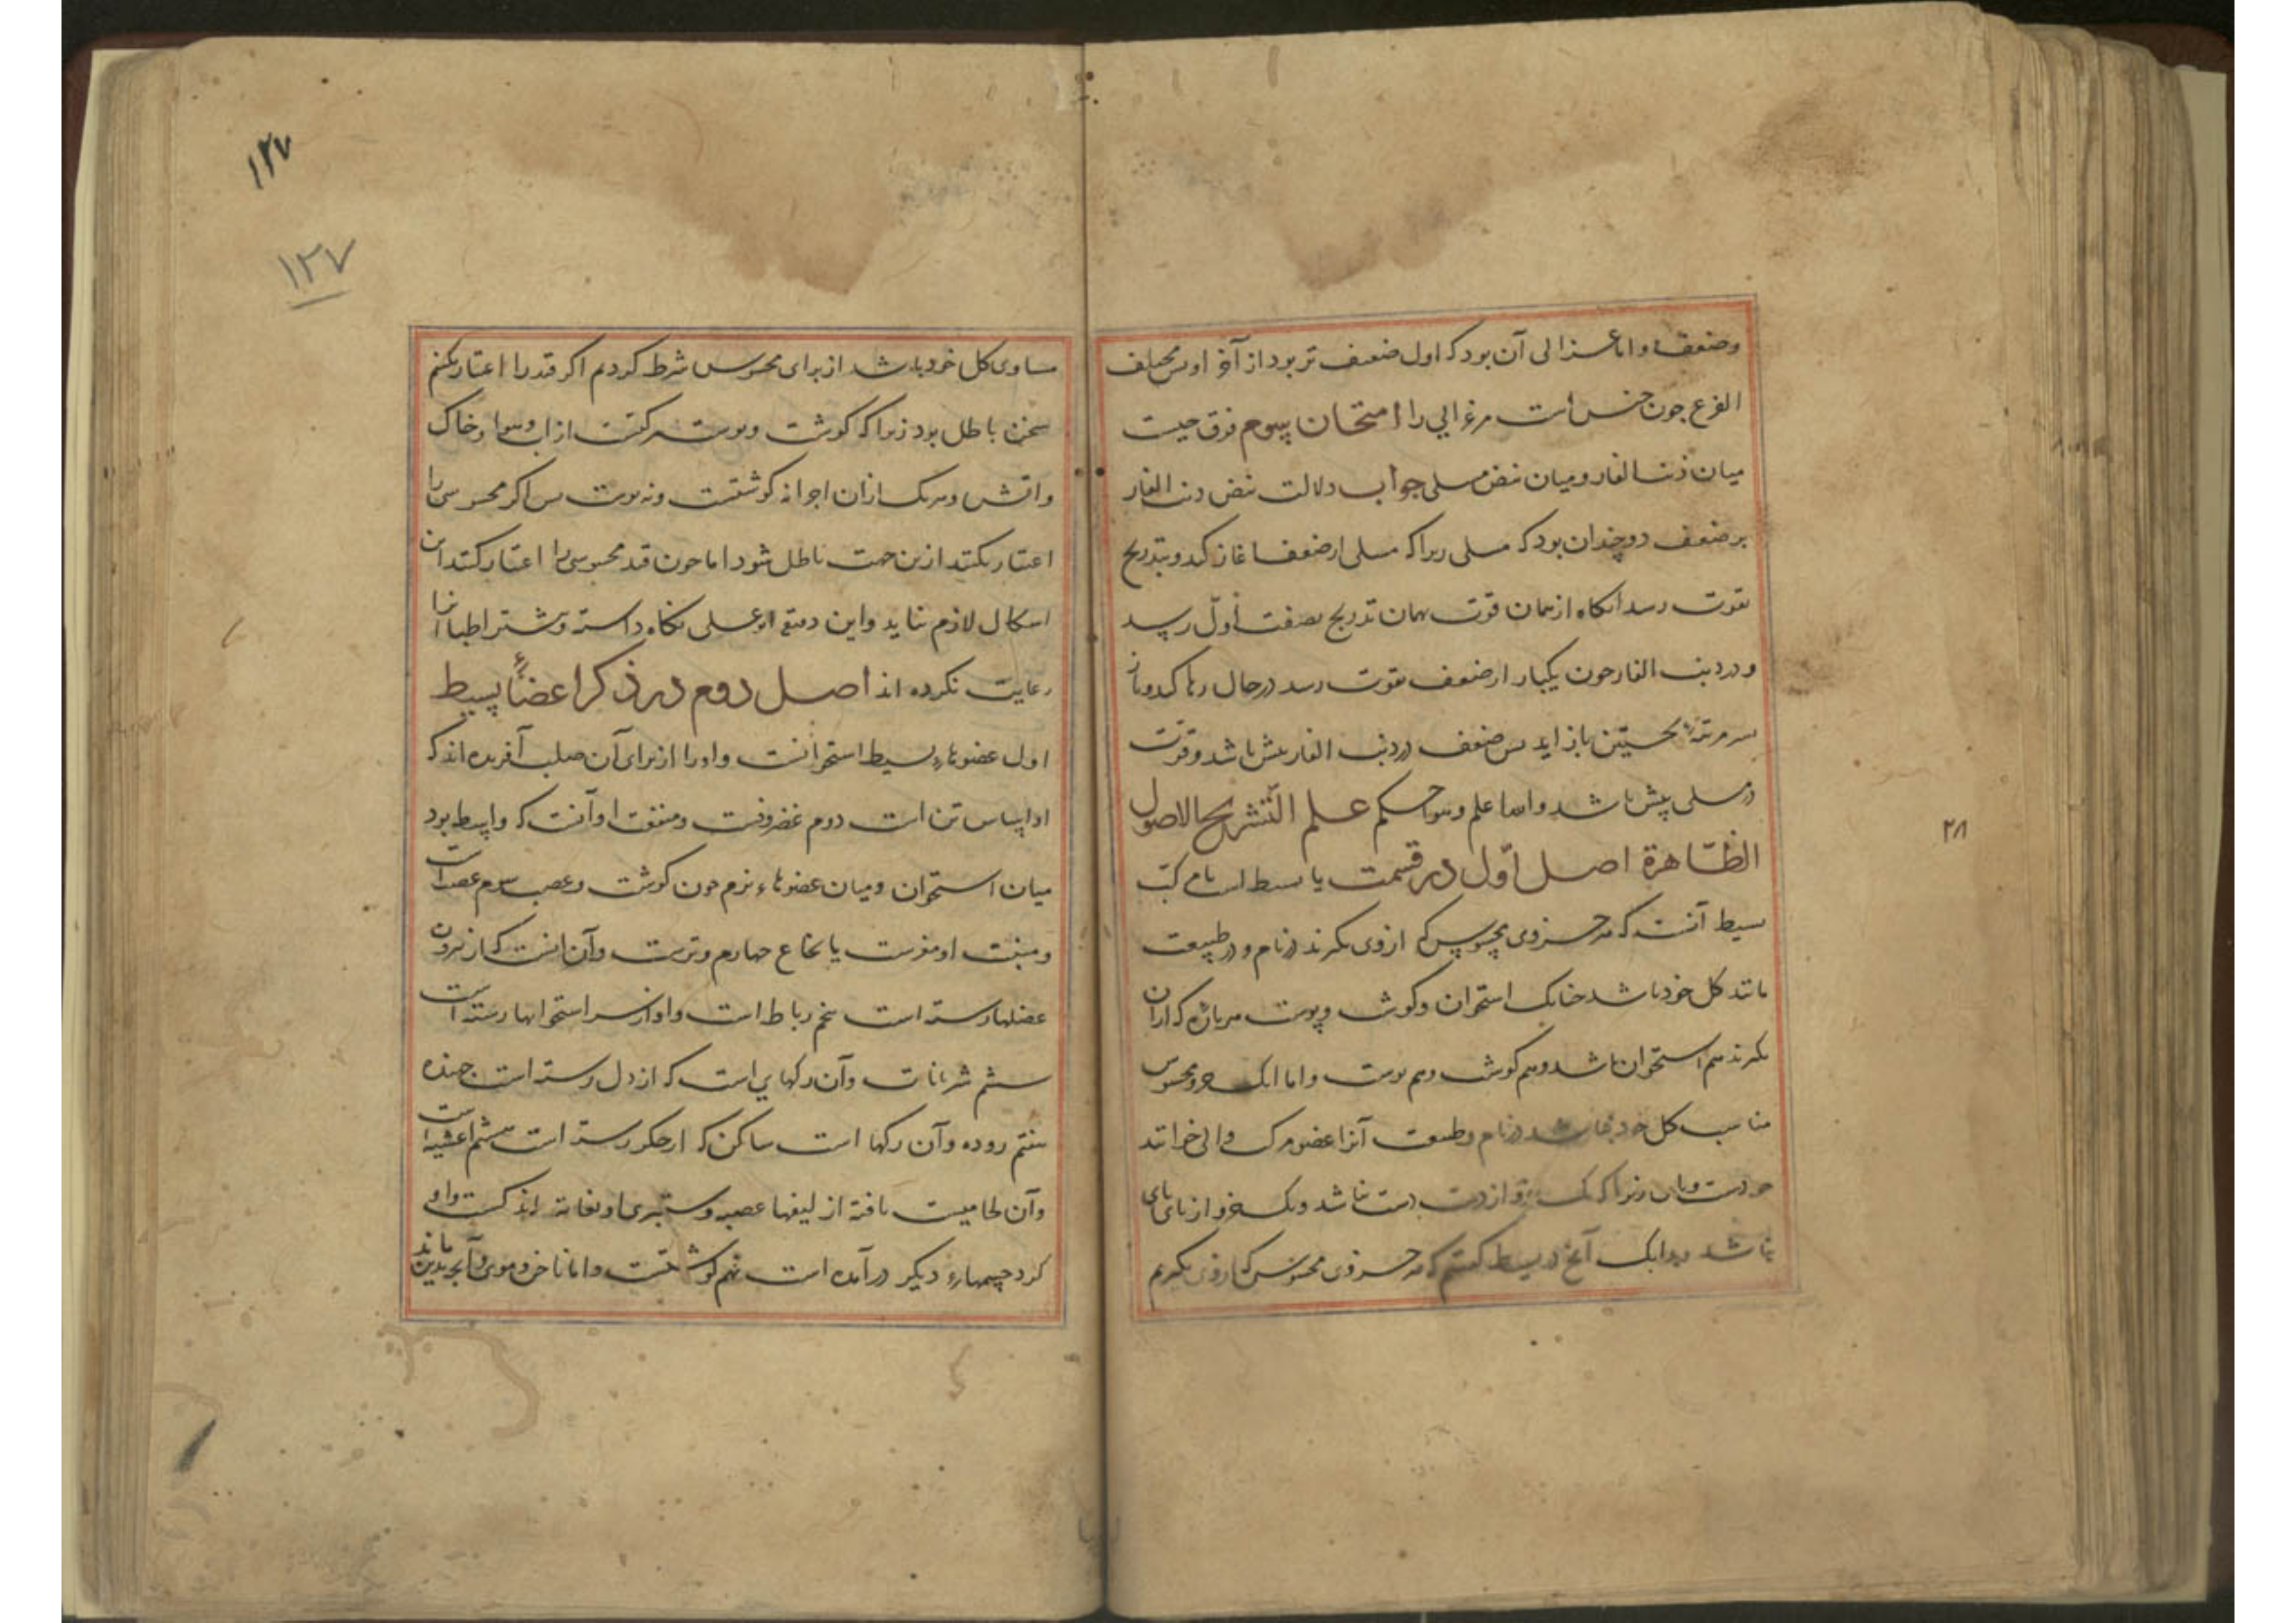 وضعف او اما غزالی آن بود که اول ضعیف تر بود از آخر او پس مختلف
القرع چون جنس است مر غزالی را امتحان سیوم فرق چیست
میان ذنب الفار و میان نبض مسلی جواب دلالت نبض ذنب الفار
بر ضعف دو چندان بود که مسلی زیرا که مسلی از ضعف آغاز کند و بتدریج
بقوت رسد آنگاه از همان قوت بهمان تدریج بصفت اول رسد
و در ذنب الفار چون یکبار از ضعف بقوت رسد در حال رها کند و باز
سر مرتبه نخستین باز آید پس ضعف در ذنب الفار بیش باشد و قوت
در مسلی بیش باشد والله اعلم و هو احکم علم التشریح الاصول
الظاهرة اصل اول در قسمت یا بسیط است یا مرکب
بسیط آنست که هر جزوی محسوس که از وی بگیرند در نام و در طبیعت
مانند کل خود باشد چنانک استخوان و گوشت و پوست هر پاره که از آن
بگیرند هم استخوان باشد و هم گوشت و هم پوست و اما آنک جزو محسوس
مناسب کل خود نباشد در نام و طبیعت آنرا عضو مرکب و آلی خوانند
چون دست و پای زیرا که یک جزو از دست دست نباشد و یک جزو از پای پای
نباشد و بدانک آنچ در بسیط گفتم که هر جزوی محسوس که از وی بگیریم
۲۸
۱۲۷
۱۲۷
مساوی کل خود باشد از برای محسوس شرط کردم اگر قید را اعتبار نکنم
سخن باطل بود زیرا که گوشت و پوست مرکبست از آب و هوا و خاک
و آتش و هر یک از آن اجزا نه گوشتست و نه پوست پس اگر محسوسی را
اعتبار نکنند ازین جهت باطل شود اما چون قید محسوسی را اعتبار کنند این
اشکال لازم نیاید و این دقیقه ابو علی نگاه داشته و بیشتر اطبا آنرا
رعایت نکرده اند اصل دوم در ذکر اعضاء بسیط
اول عضوهاء بسیط استخوانست و او را از برای آن صلب آفریده اند که
او اساس تن است دوم غضروفست و منفعت او آنست که واسطه بود
میان استخوان و میان عضوهاء نرم چون گوشت و عصب سیم عصب است
و منبت او مغزست یا نخاع چهارم وترست و آن آنست که از نیرون
عضلها رسته است پنجم رباط است و او از سر استخوانها رسته است
ششم شریانات و آن رگهایی است که از دل رسته است جهنده
هفتم روده و آن رگها است ساکن که از جگر رسته است هشتم اغشیه است
و آن لحامیست بافته از لیفها عصب و ستبری او بغایة اندکست و او
گرد چیزهاء دیگر درآمده است نهم گوشتست و اما ناخن و موی و آنچ بدین ماند